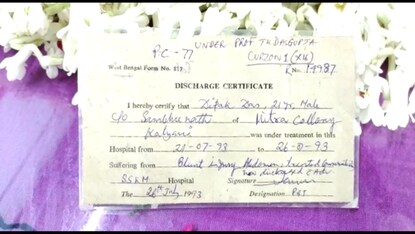 UNDER PROF T.K. DASGUPTA
PC-77 CURZON 1 (
West Bengal Form No. 817 R 14987
DISCHARGE CERTIFICATE
I hereby certify that Dipak Das, 21 yr, Male
C/o Sambhu nath of Mitra Colony
Kalyani was under treatment in this
Hospital from 21-07-93 to 26-7-93
Suffering from Blunt injury Abdomen, treated
SSKM Hospital Signature
The 26th July 1993 Designation